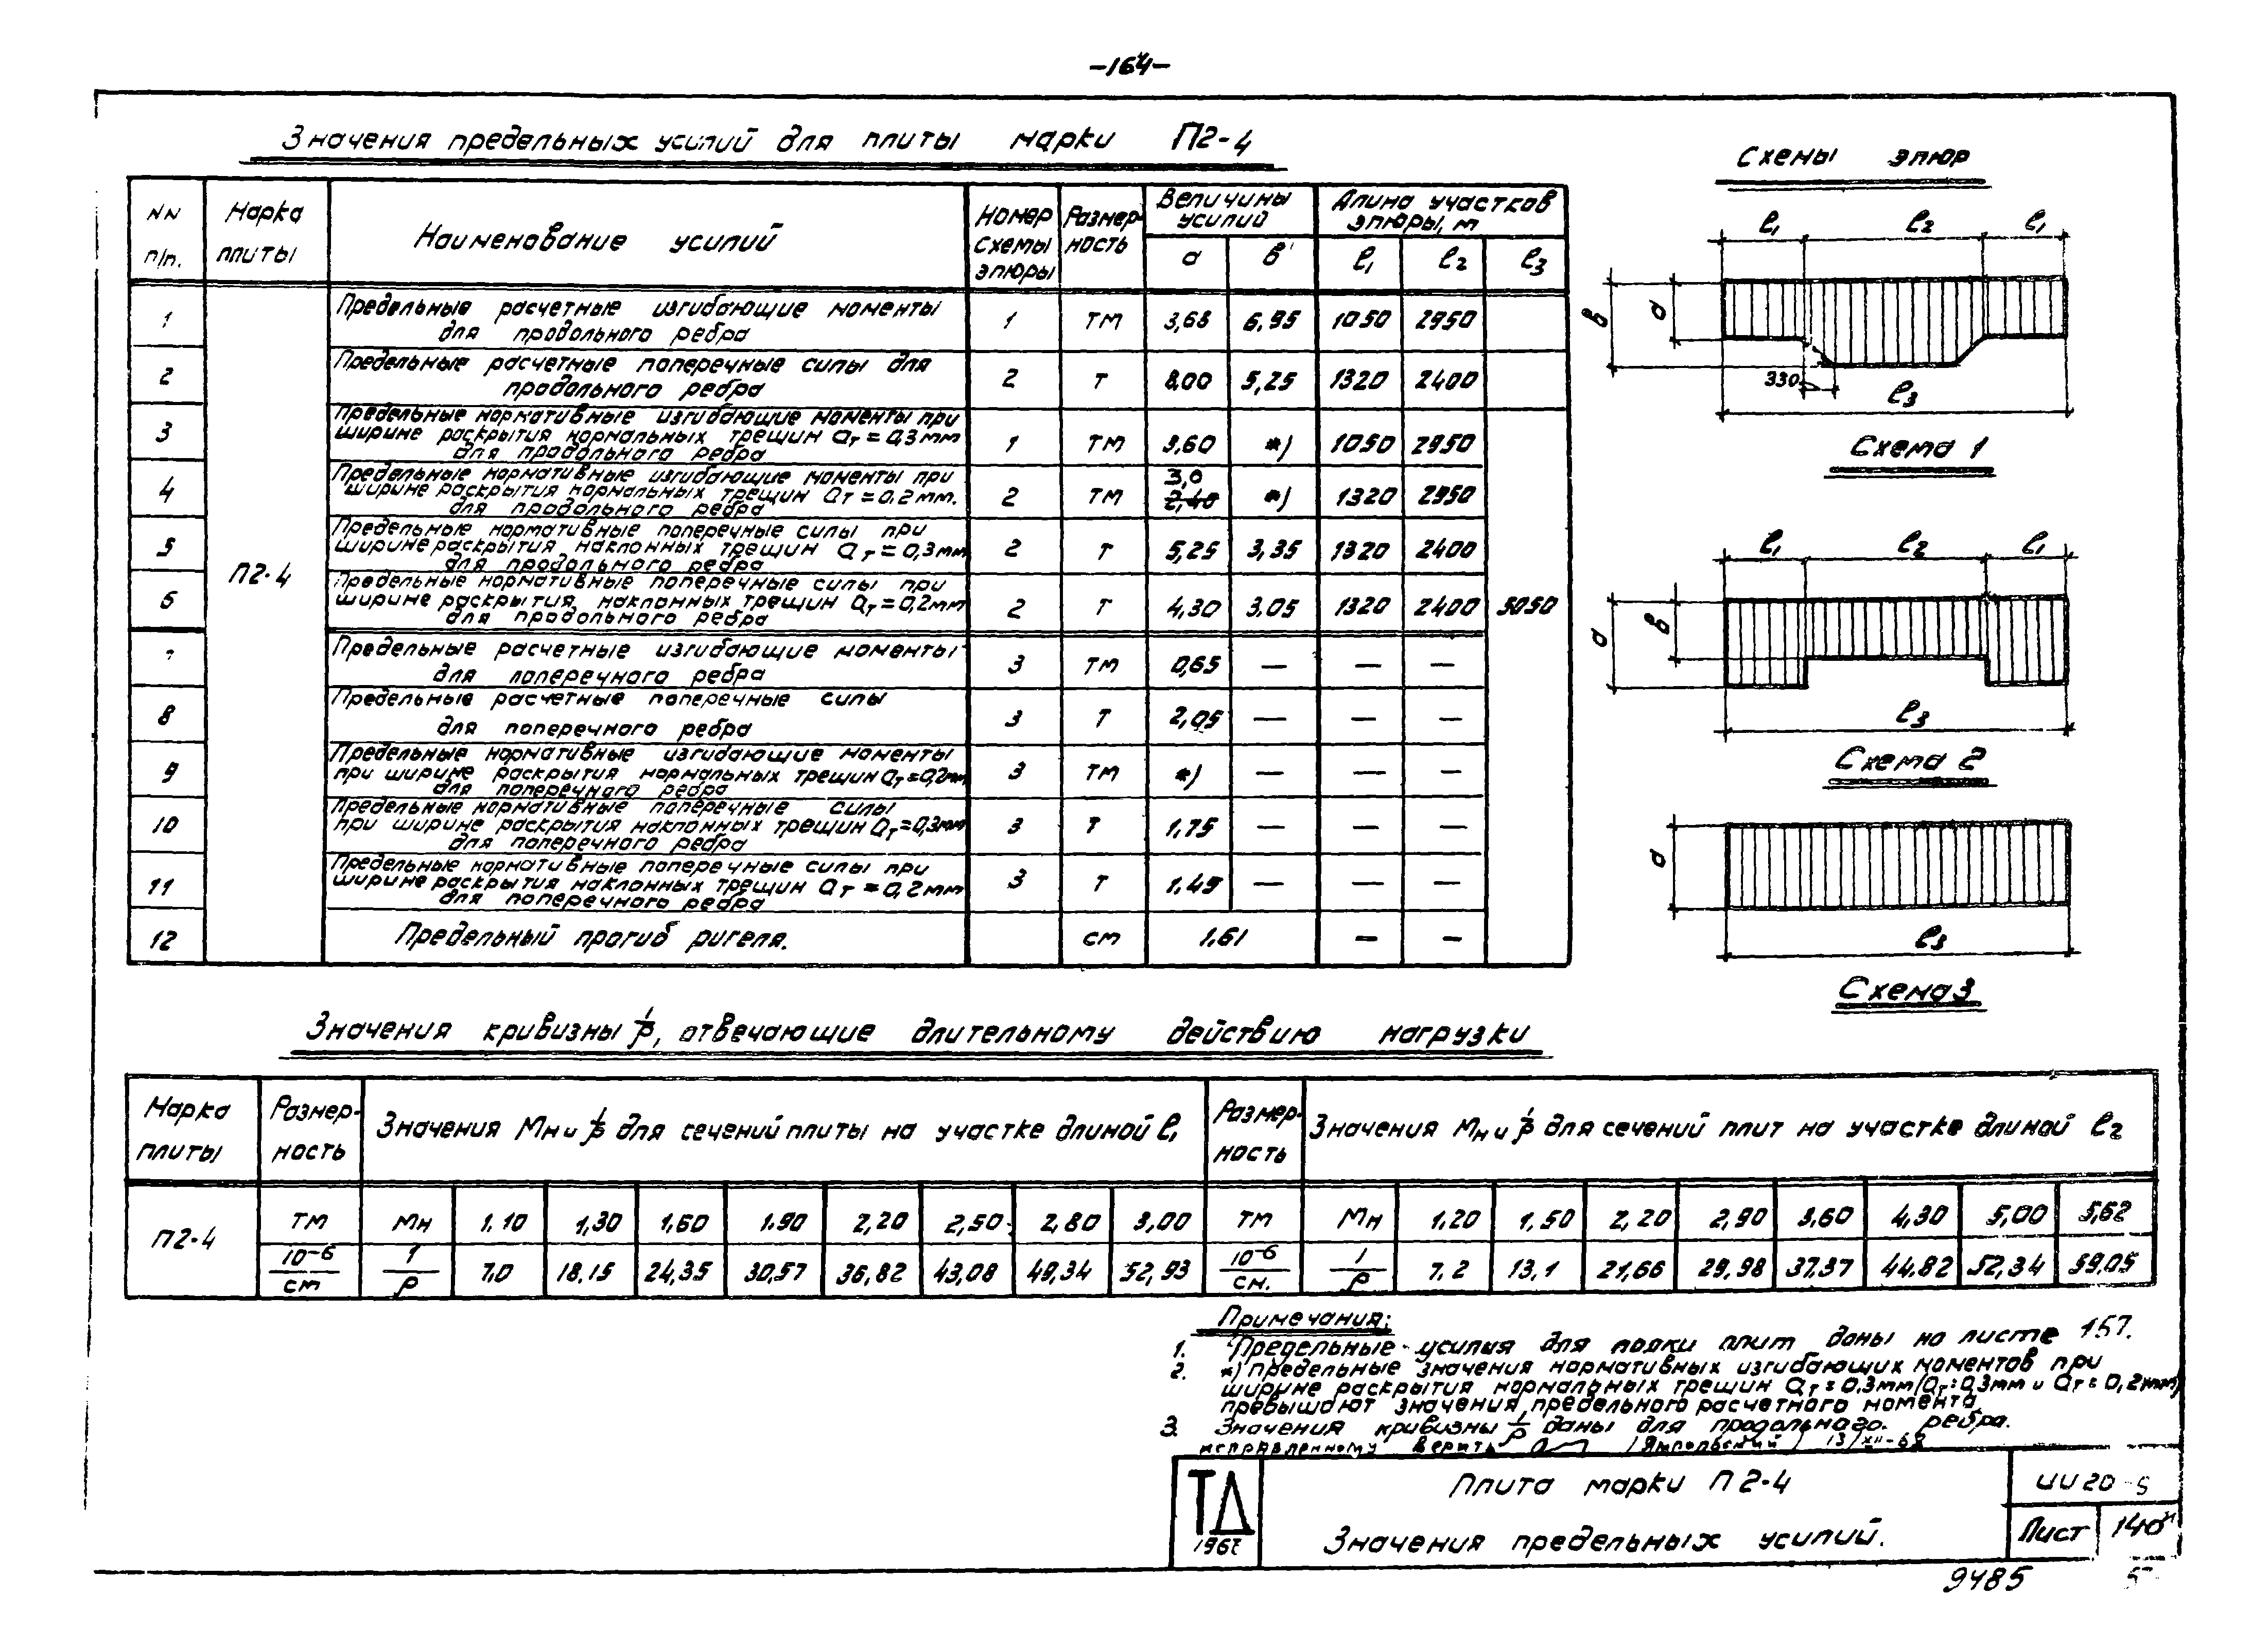 -164-
Значения предельных усилий для плиты марки П2-4
Схемы эпюр
NN п/п. | Марка плиты | Наименование усилий | Номер схемы эпюры | Размерность | Величины усилий | Длина участков эпюры, м
а | в | ℓ1 | ℓ2 | ℓ3
П2-4
5050
1 | Предельные расчетные изгибающие моменты для продольного ребра | 1 | тм | 3,68 | 6,95 | 1050 | 2950
2 | Предельные расчетные поперечные силы для продольного ребра | 2 | т | 8.00 | 5,25 | 1320 | 2400
3 | Предельные нормативные изгибающие моменты при ширине раскрытия нормальных трещин ат = 0,3мм для продольного ребра | 1 | тм | 3,60 | *) | 1050 | 2950
4 | Предельные нормативные изгибающие моменты при ширине раскрытия нормальных трещин ат = 0.2мм. для продольного ребра | 2 | тм | 3,0 2,40 | *) | 1320 | 2950
5 | Предельные нормативные поперечные силы при ширине раскрытия наклонных трещин ат = 0,3мм для продольного ребра | 2 | т | 5,25 | 3,35 | 1320 | 2400
6 | Предельные нормативные поперечные силы при ширине раскрытия наклонных трещин ат = 0,2мм для продольного ребра | 2 | т | 4,30 | 3.05 | 1320 | 2400
Предельные расчетные изгибающие моменты для поперечного ребра | 3 | тм | 0,65 | — | — | —
8 | Предельные расчетные поперечные силы для поперечного ребра | 3 | т | 2,05 | — | — | —
9 | Предельные нормативные изгибающие моменты при ширине раскрытия нормальных трещин ат = 0,2мм для поперечного ребра | 3 | тм | *) | — | — | —
10 | Предельные нормативные поперечные силы при ширине раскрытия наклонных трещин ат = 0,3мм для поперечного ребра | 3 | т | 1,75 | — | — | —
11 | Предельные нормативные поперечные силы при ширине раскрытия наклонных трещин ат = 0,2мм для поперечного ребра | 3 | т | 1.45 | — | — | —
12 | Предельный прогиб ригеля. | см | 1.61 | — | —
ℓ1 ℓ2 ℓ1
в а
330
ℓ3
Схема 1
ℓ1 ℓ2 ℓ1
а в
ℓ3
Схема 2
а
ℓ3
Схема 3
Значения кривизны 1/ρ, отвечающие длительному действию нагрузки
Марка плиты | Размерность | Значения Мн и 1/ρ для сечений плиты на участке длиной ℓ1 | Размерность | Значения Мн и 1/ρ для сечений плит на участке длиной ℓ2
П2-4 | тм | Мн | 1.10 | 1,30 | 1,60 | 1.90 | 2,20 | 2,50 | 2,80 | 3,00 | тм | Мн | 1,20 | 1,50 | 2,20 | 2,90 | 3,60 | 4,30 | 5,00 | 5,62
10⁻⁶/см | 1/ρ | 7,0 | 18,15 | 24,35 | 30,57 | 36,82 | 43,08 | 49,34 | 52,93 | 10⁻⁶/см. | 1/ρ | 7.2 | 13,1 | 21,66 | 29,98 | 37,37 | 44,82 | 52,34 | 59,05
Примечания:
1. Предельные усилия для полки плит даны на листе 157.
2. *) Предельные значения нормативных изгибающих моментов при
ширине раскрытия нормальных трещин ат = 0,3мм/ат = 0,3мм и ат = 0,2мм)
превышают значения предельного расчетного момента
3. Значения кривизны 1/ρ даны для продольного ребра.
исправленному верить /Ямпольский/ 13/XII-68
ТД
Плита марки П2-4
ИИ20-5
Значения предельных усилий.
Лист 140
9485